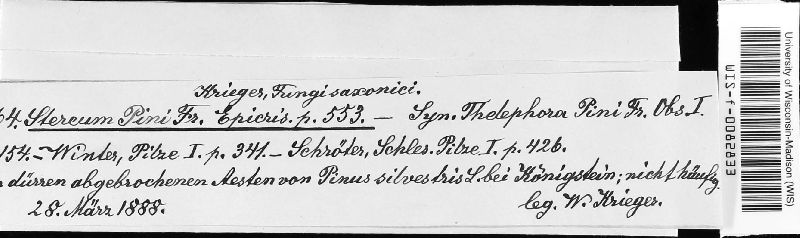 Krieger, Fungi saxonici.
64. Stereum Pini Fr. Epicris. p. 553. — Syn. Thelephora Pini Fr. Obs. I.
154. — Winter, Pilze I. p. 341. — Schröter, Schles. Pilze. I. p. 426.
dürren abgebrochenen Aesten von Pinus silvestris L. bei Königstein; nicht häufig
28. März 1888. leg. W. Krieger.
University of Wisconsin-Madison (WIS)
WIS-f-0082833